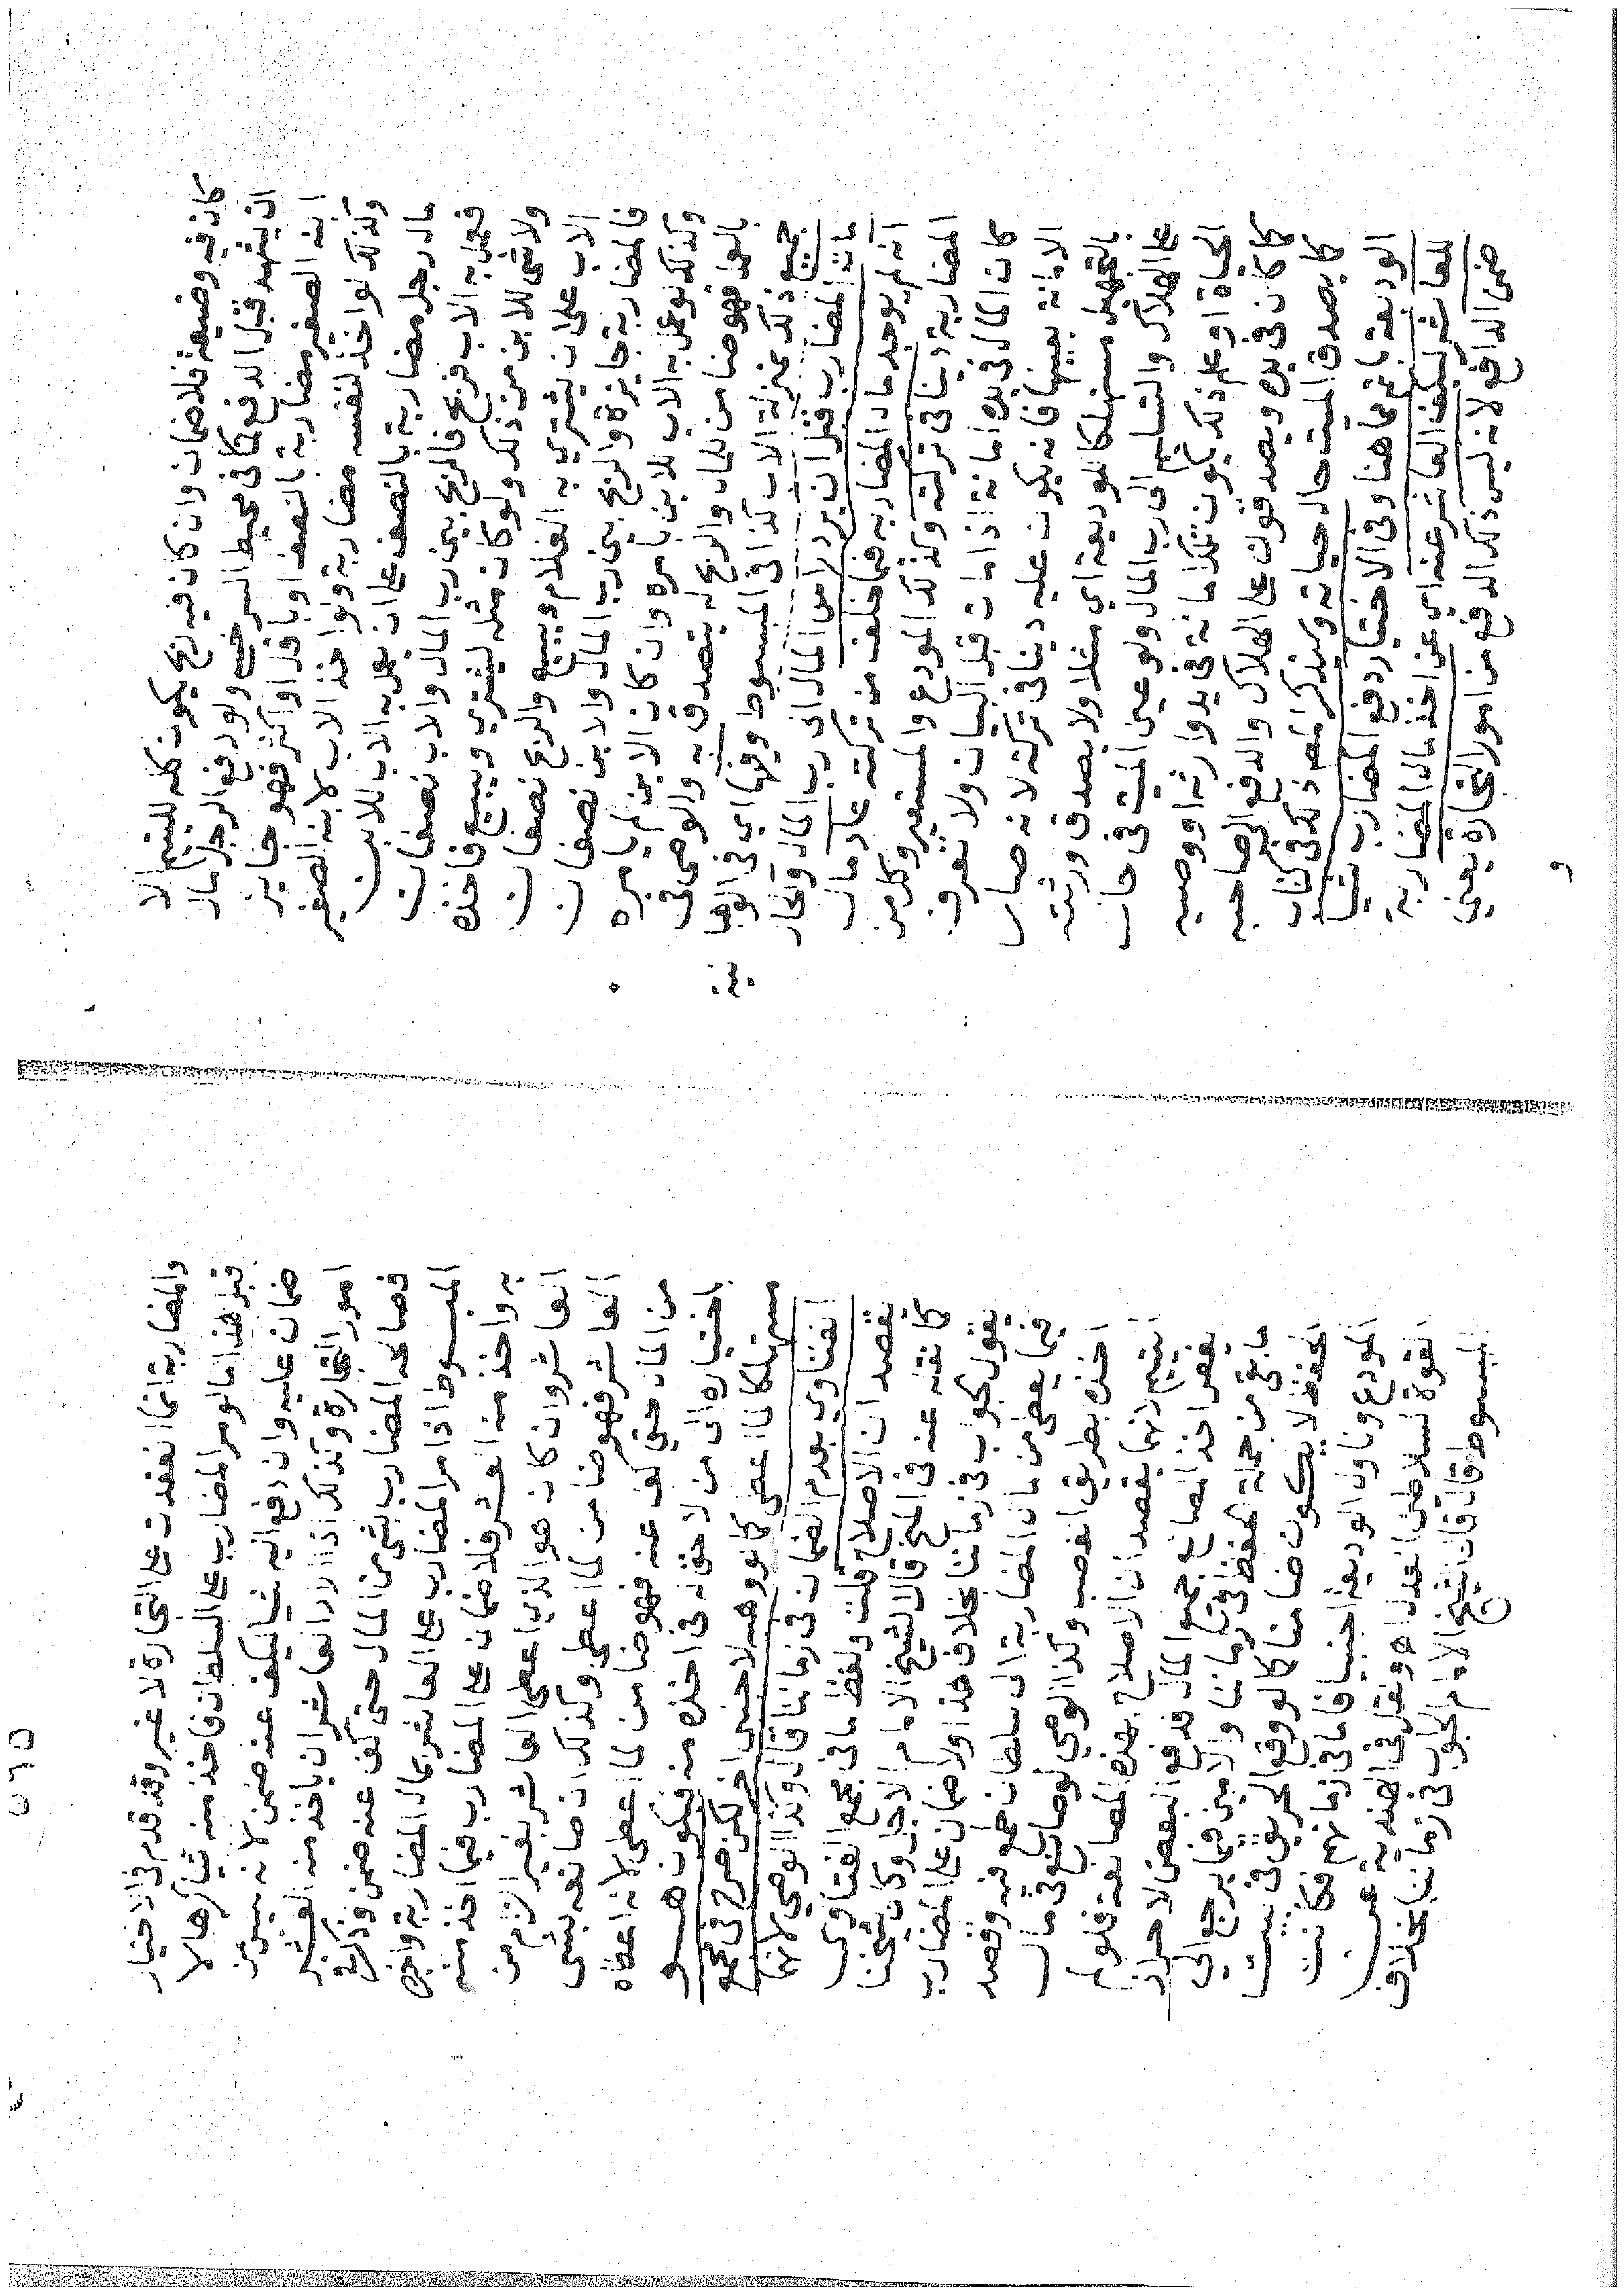 كان فيه وضيعة فلا ضمان وان كان فيه ربح يكون كله لليتيم الا
ان يشهد قبل الدفع كما في محيط السرخسي ولو دفع الرجل مال
ابنه الصغير مضاربة بالنصف او باقل او اكثر فهو جايز
وكذلك لو اخذ لنفسه مضاربة ولو اخذ الاب لابنه الصغير
مال رجل مضاربة بالنصف على ان يعمل به الاب للابن
فعمل به الاب فربح فالربح بين رب المال والاب نصفان
ولا شي للابن من ذلك ولو كان مثله يشتري ويبيع فاخذه
الاب على ان يشتري به الغلام ويبيع والربح نصفان
فالمضاربة جايزة والربح بين رب المال والابن نصفان
وكذلك لو عمل به الاب للابن بامره وان كان الابن لم يامره
بالعمل فهو ضامن للمال والربح له يتصدق به والوصي في
جميع ذلك بمنزلة الاب كذا في المبسوط وفيها اي في الوهبا نية
مات المضارب قبل ان يرد راس المال الى رب المال والحال
انه لم يوجد مال المضاربة فيما خلف من تركته عاد مال
المضاربة دينا في تركته وكذلك المودع والمستعير وكل من
كان المال في يده امانة اذا مات قبل البيان ولا تعرف
الامانة بعينها فانه يكون عليه دينا في تركته لانه صار
بالتجهيل مستهلكا للوديعة اي مثلا ولا يصدق ورثته
على الهلاك والتسليم الى رب المال ولو عين الميت في حال
الحياة او علم ذلك يكون تلك امانة في يد وارثه او وصيه
كما كان في يده ويصدقون على الهلاك والدفع الى صاحبه
كما يصدق الميت حال حياته وسيذكر المص ذلك في كتاب
الوديعة باتم مما هنا وفي الاختيار دفع المضارب شيئا
للعاشر ليكف العاشر عنه اي عن اخذ مال المضاربة
ضمن الدافع لانه ليس ذلك الدفع من امور التجارة يعني
والمضاربة انما انعقدت على التجارة لا غير وقد قدم في الاختيار
قبل هذا ما لو مر المضارب على السلطان فاخذ منه شيئا كرها لا
ضمان عليه وان دفع اليه شيئا ليكف عنه ضمن لانه ليس من
امور التجارة وكذلك اذا اراد العاشر ان ياخذ منه العشر
فصالحه المضارب بشي من المال حتى كف عنه ضمن وذكر في
المبسوط اذا مر المضارب على العاشر بمال المضاربة واخبره
به واخذ منه العشر فلا ضمان على المضارب فيما اخذ منه
العاشر وان كان هو الذي اعطى العاشر بغير الزام من
العاشر فهو ضامن لما اعطى وكذلك ان صانعه بشي
من المال حتى كف عنه فهو ضامن لما اعطى لانه اعطاه
باختياره الى من لا حق له في اخذه منه فيكون هـو
مستهلكا لما اعطى كما لو وهبه لاجنبي اخر لكن صرح في مجمع
الفتاوي بعدم الضمان في زماننا قال وكذا الوصي لانهما
يقصدان الاصلاح قلت ولفظ ما في مجمع الفتاوي
كما نقله عنه في المنح قال الشيخ الامام الاجل وكان شيخنا
يقول الجواب في زماننا بخلاف هذا ولا ضمان على المضارب
فيما يعطي من مال المضاربة الى سلطان طمع فيه وقصد
اخذه بطريق الغصب وكذا الوصي لو صانع في مال
اليتيم لانهما يقصدان الاصلاح بهذه المصانعة فلو لم
يفعل اخذ الصانع جميع المال فدفع البعض لاحراز
ما بقي من جملة الحفظ في زماننا والامين فيما يرجع الى
الحفظ لا يكون ضامنا كما لو وقع الحريق في بيت
المودع وناول الوديعة اجنبيا فاما في زمانهم فكانت
القوة لسلاطين العدل اه ونقل في الهندية عن
المبسوط قال قال الشيخ الامام الجواب في زماننا بخلاف